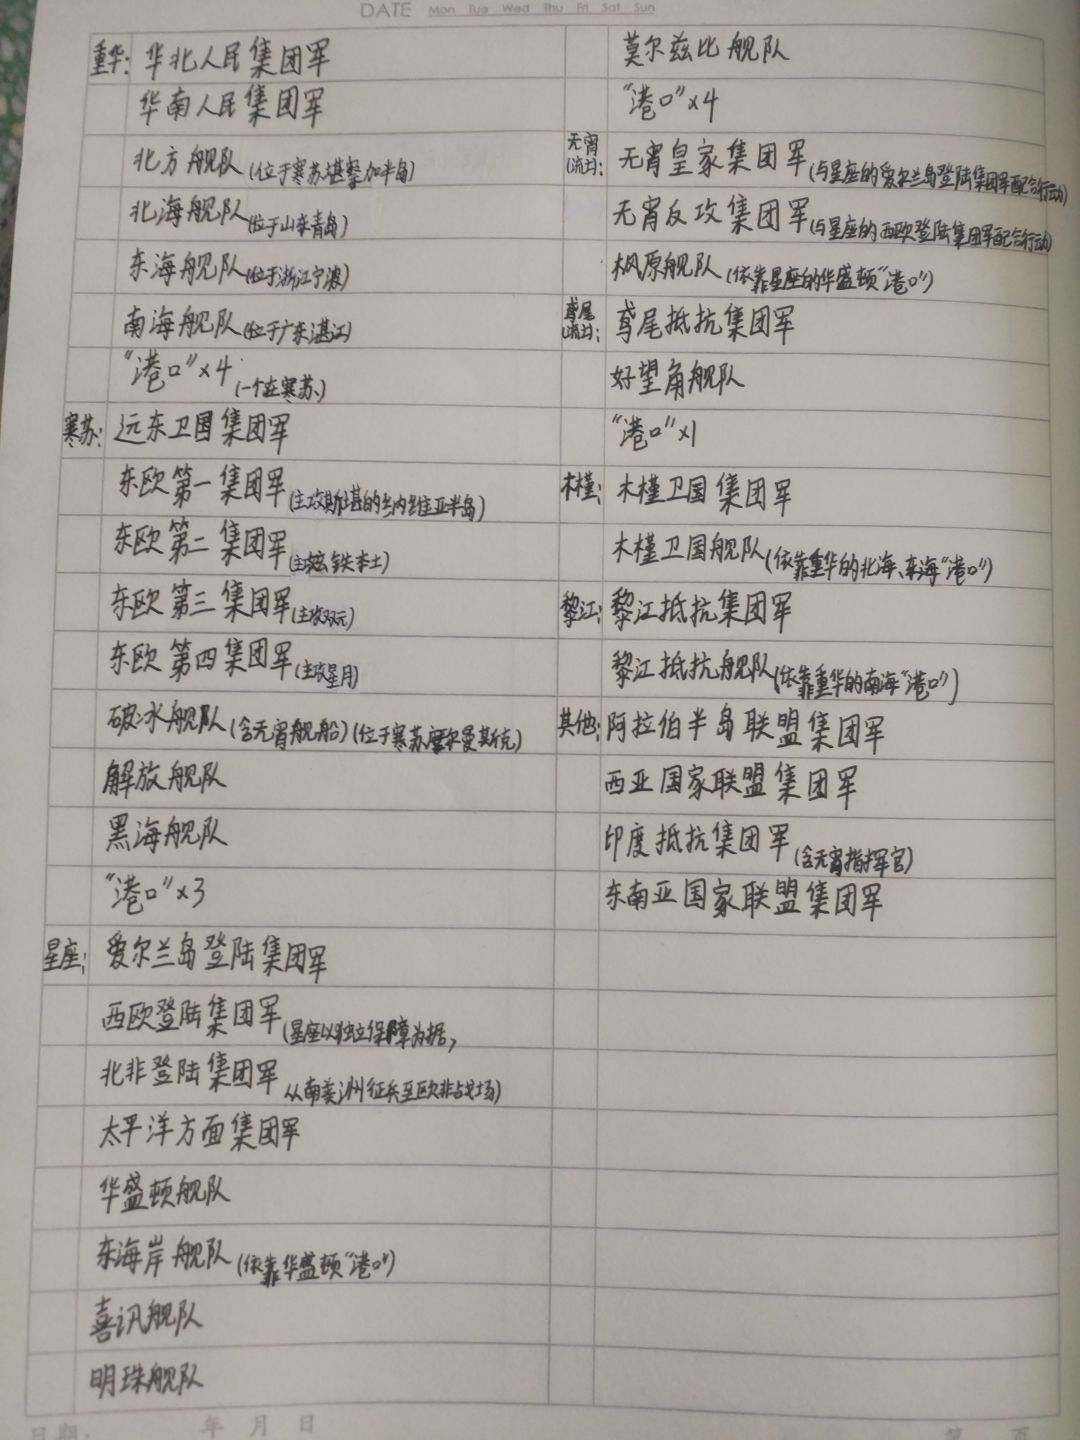 DATE Mon Tue Wed Thu Fri Sat Sun
重华: 华北人民集团军
华南人民集团军
北方舰队(位于寒苏堪察加半岛)
北海舰队(位于山东青岛)
东海舰队(位于浙江宁波)
南海舰队(位于广东湛江)
"港口"×4(一个在寒苏)
寒苏: 远东卫国集团军
东欧第一集团军(主攻斯堪的纳维亚半岛)
东欧第二集团军(主攻铁本土)
东欧第三集团军(主攻双元)
东欧第四集团军(主攻星月)
破冰舰队(含无宵舰船)(位于寒苏摩尔曼斯克)
解放舰队
黑海舰队
"港口"×3
星座: 爱尔兰岛登陆集团军
西欧登陆集团军(星座以独立保障为据,
北非登陆集团军 从南美洲征兵至欧非战场)
太平洋方面集团军
华盛顿舰队
东海岸舰队(依靠华盛顿"港口")
喜讯舰队
明珠舰队
莫尔兹比舰队
"港口"×4
无宵(流亡): 无宵皇家集团军(与星座的爱尔兰岛登陆集团军配合行动)
无宵反攻集团军(与星座的西欧登陆集团军配合行动)
枫原舰队(依靠星座的华盛顿"港口")
鸢尾(流亡): 鸢尾抵抗集团军
好望角舰队
"港口"×1
木槿: 木槿卫国集团军
木槿卫国舰队(依靠重华的北海、东海"港口")
黎江: 黎江抵抗集团军
黎江抵抗舰队(依靠重华的南海"港口")
其他: 阿拉伯半岛联盟集团军
西亚国家联盟集团军
印度抵抗集团军(含无宵指挥官)
东南亚国家联盟集团军
日期: 年 月 日
第 页